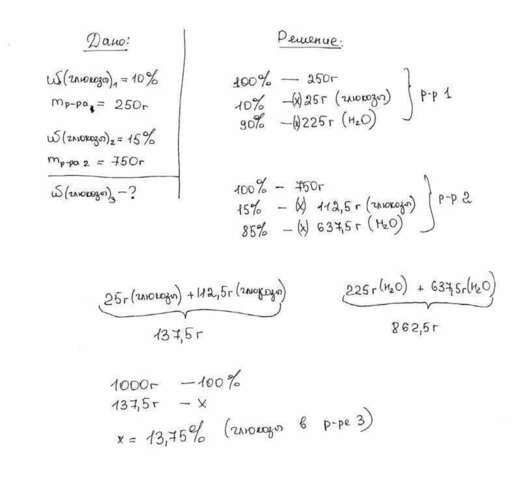 Дано:
ω(глюкозы)₁ = 10%
mр-ра₁ = 250г
ω(глюкозы)₂ = 15%
mр-ра 2 = 750г
ω(глюкозы)₃ - ?
Решение:
100% — 250г
10% —(x) 25г (глюкозы)
90% —(x) 225г (H₂O)
р-р 1
100% - 750г
15% - (x) 112,5г (глюкозы)
85% - (x) 637,5г (H₂O)
р-р 2
25г (глюкозы) + 112,5г (глюкозы)
137,5г
225г (H₂O) + 637,5г (H₂O)
862,5г
1000г — 100%
137,5г - x
x = 13,75% (глюкозы в р-ре 3)